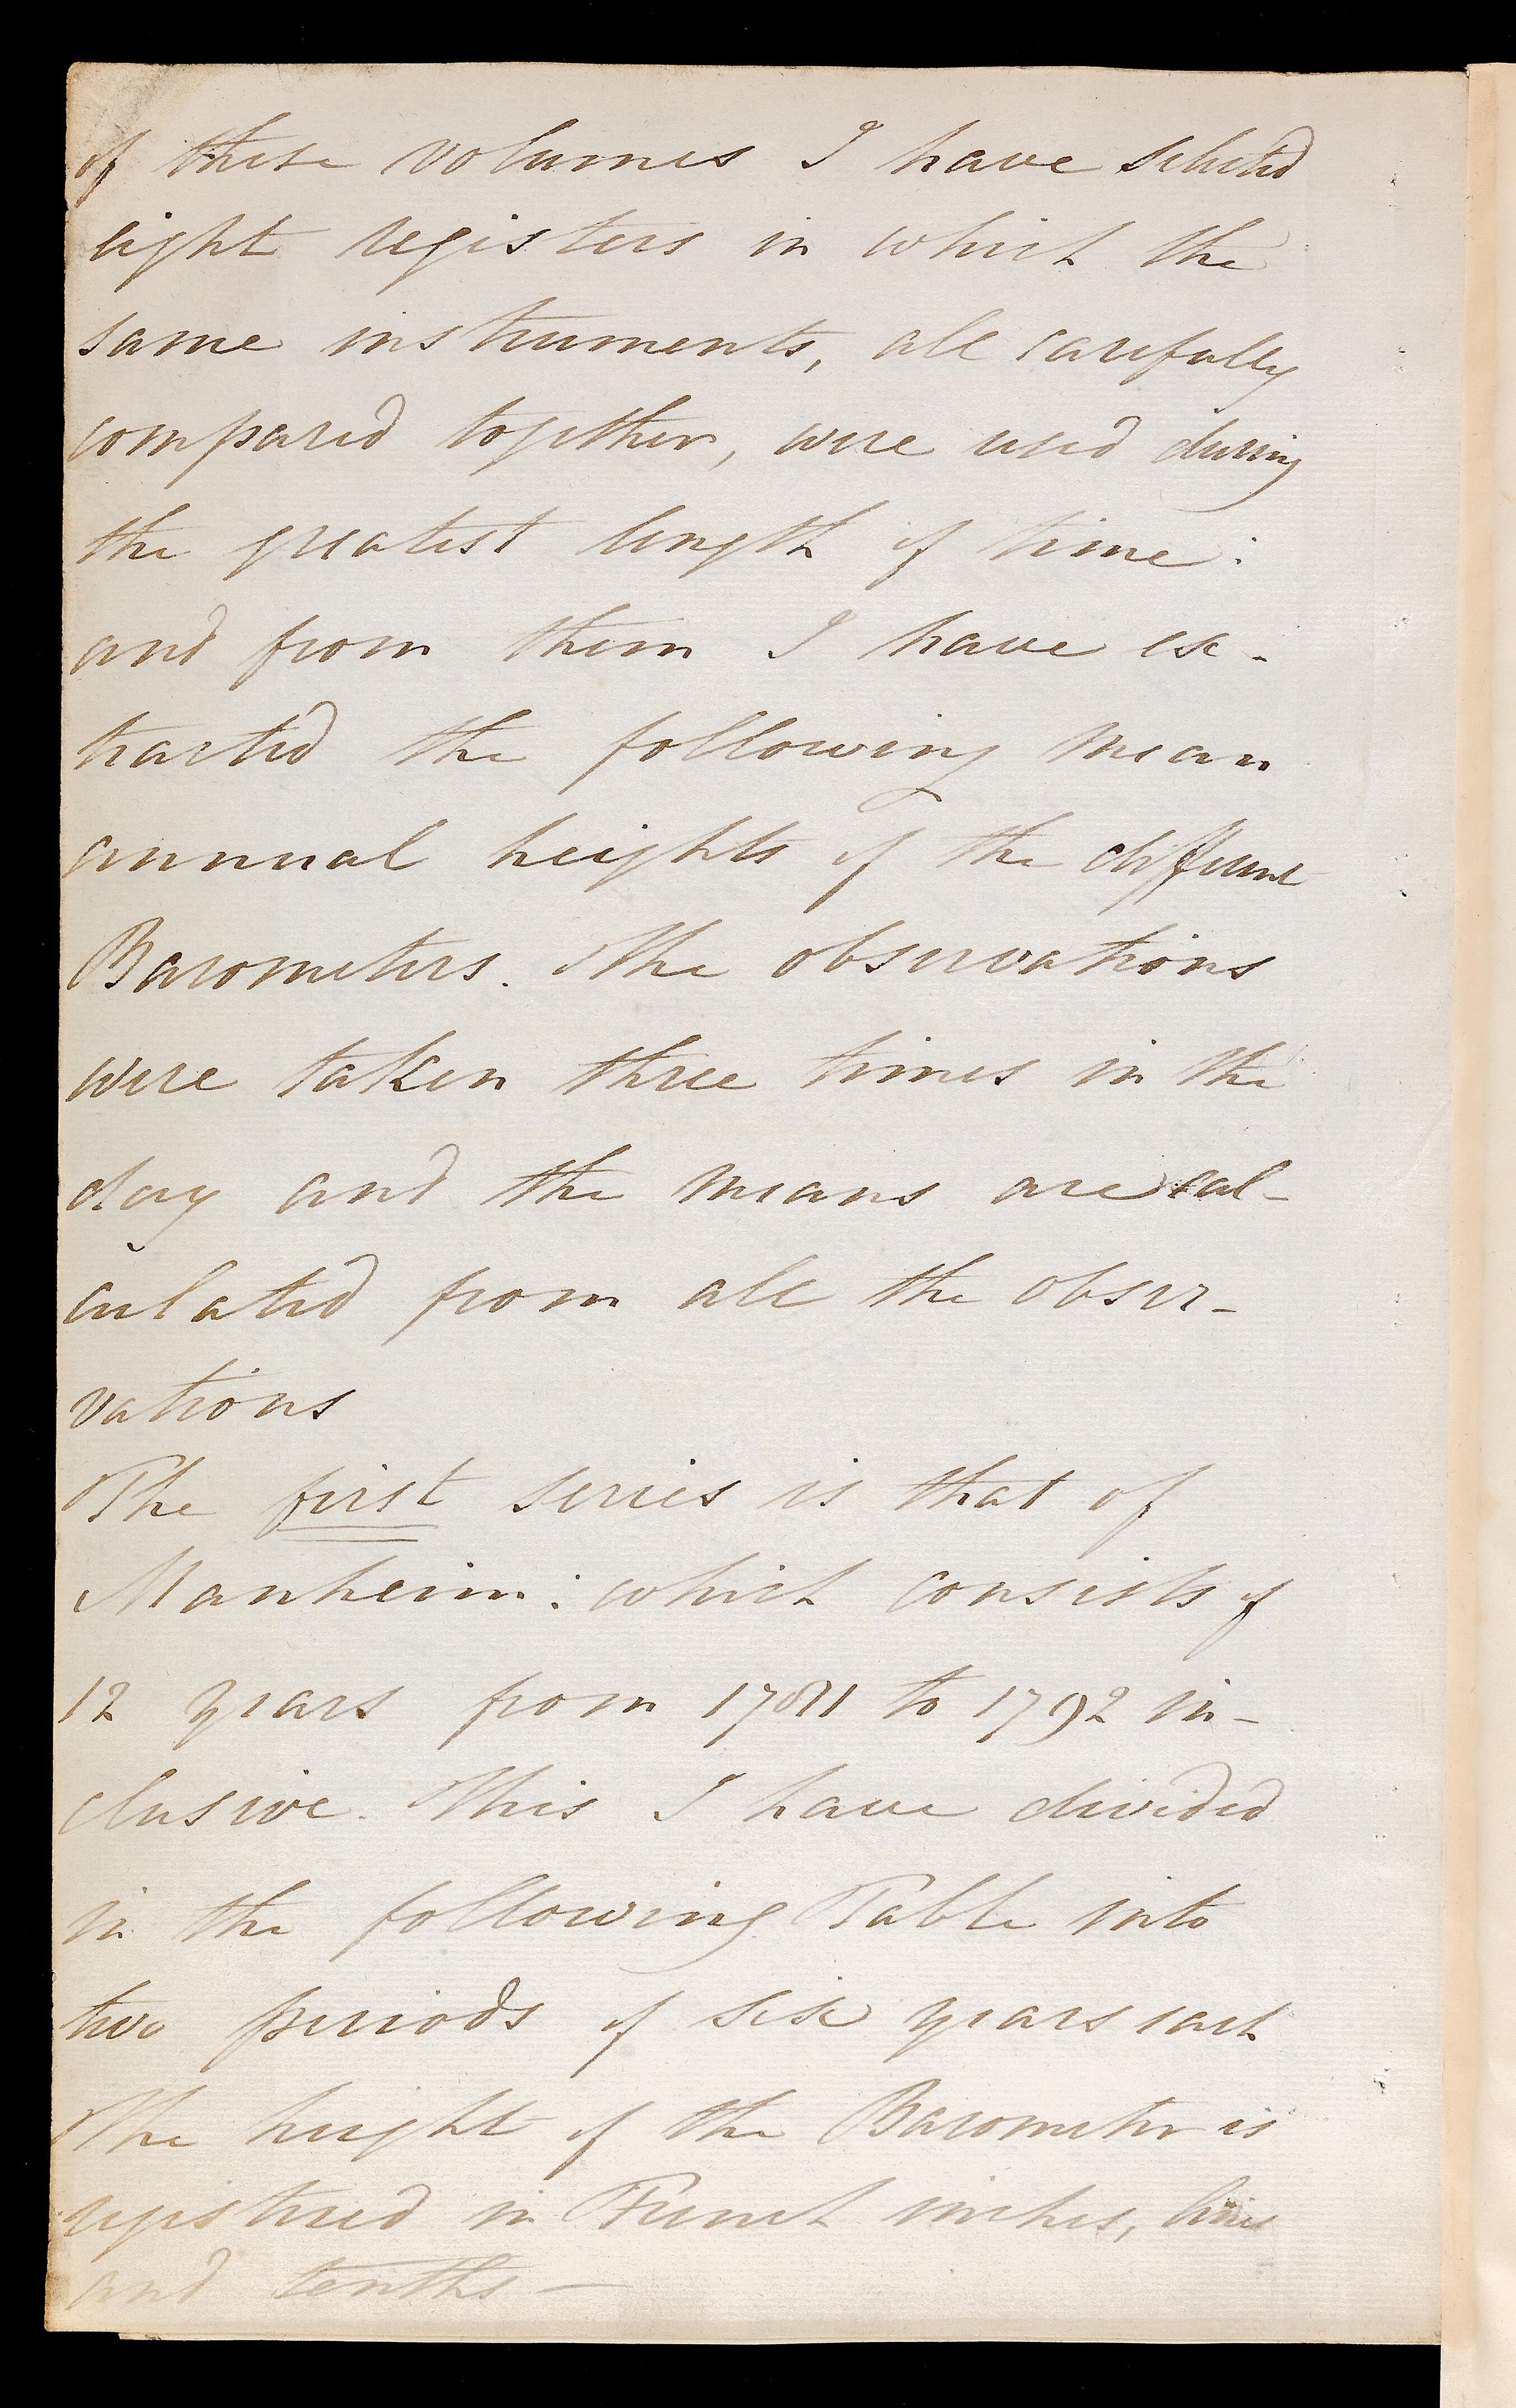 of these volumes I have selected
eight registers in which the
same instruments, all carefully
compared together, were used during
the greatest length of time:
and from them I have ex-
tracted the following mean
annual heights of the different
Barometers. The observations
were taken three times in the
day and the means are cal-
culated from all the obser-
vations
The first series is that of
Manheim: which consists of
12 years from 1781 to 1792 in-
clusive. This I have divided
in the following Table into
two periods of six years each
The height of the Barometer is
registered in French inches, lines
and tenths —